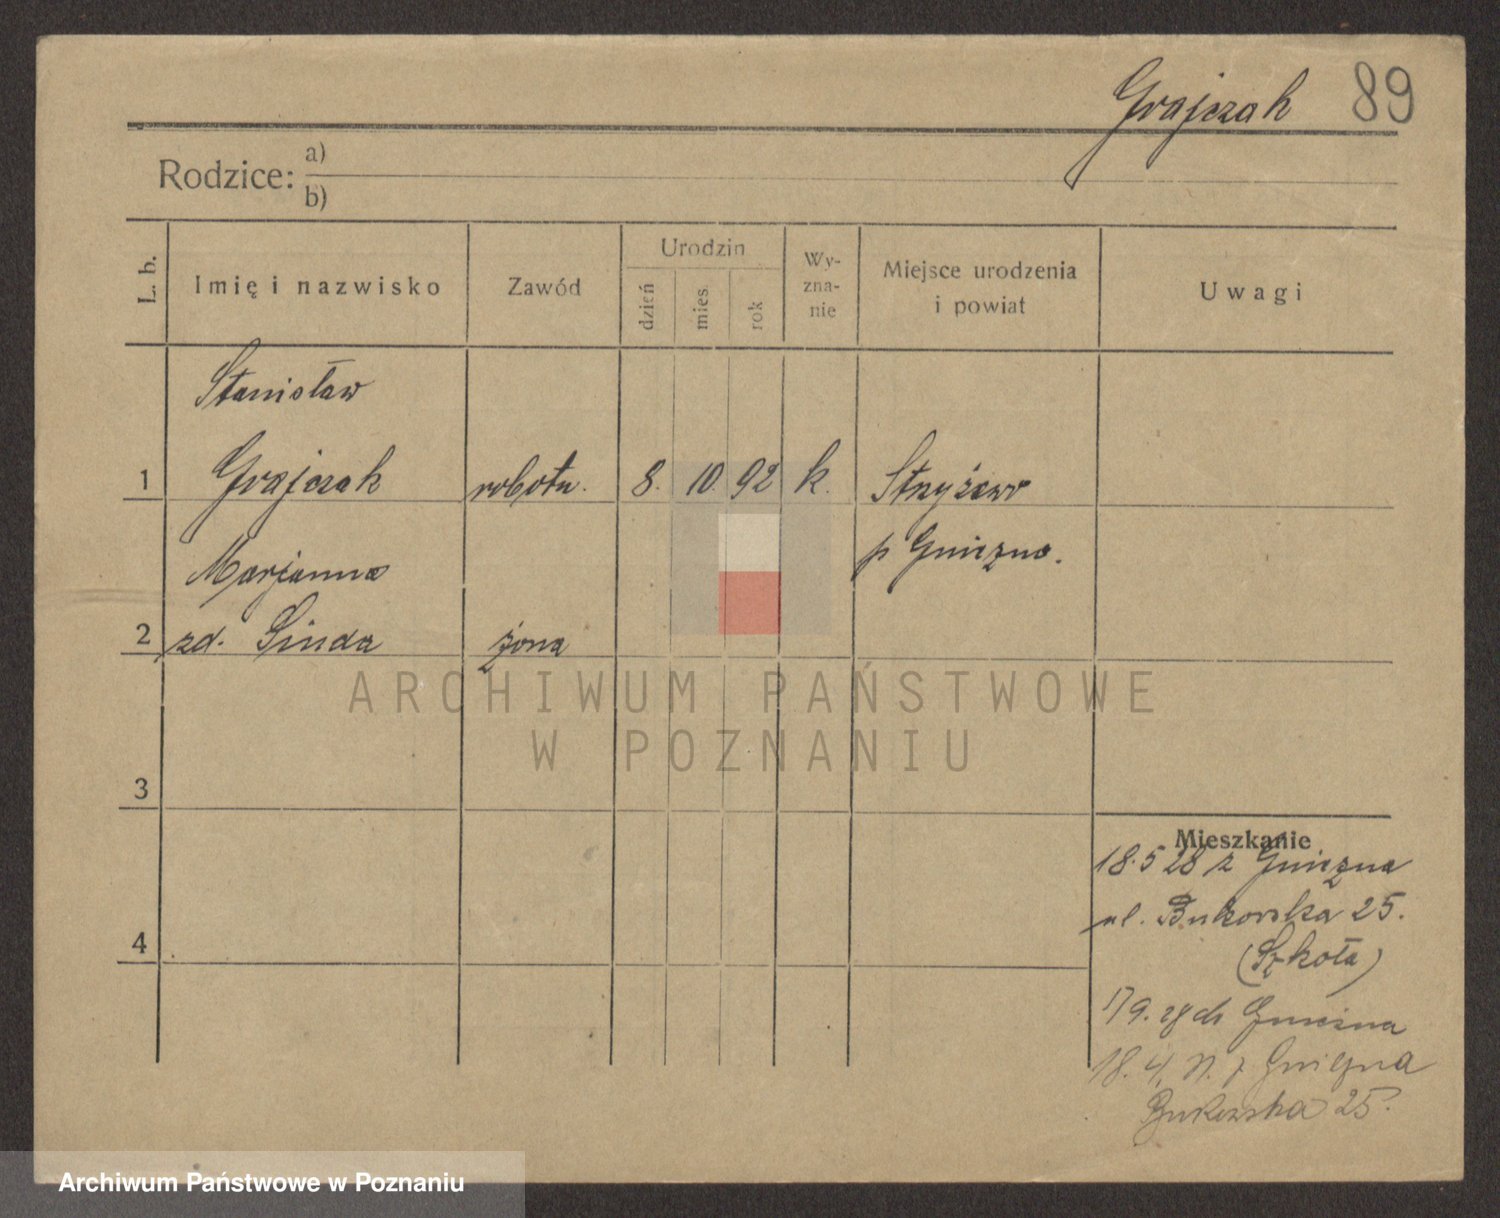 Grajczak 89
Rodzice: a)
b)
L. b. Imię i nazwisko Zawód Urodzin dzień mies. rok Wy-zna-nie Miejsce urodzenia i powiat Uwagi
Stanisław
1 Grajczak robotn. 8. 10 92 k. Strzyżewo
p Gniezno.
Marjanna
2 zd. Sinda żona
ARCHIWUM PAŃSTWOWE
W POZNANIU
3
Mieszkanie
18.5 28 z Gniezna
ul. Bukowska 25.
4
(Szkoła)
17 9. 28 do Gniezna
18. 4. z Gniezna
Bukowska 25.
Archiwum Państwowe w Poznaniu